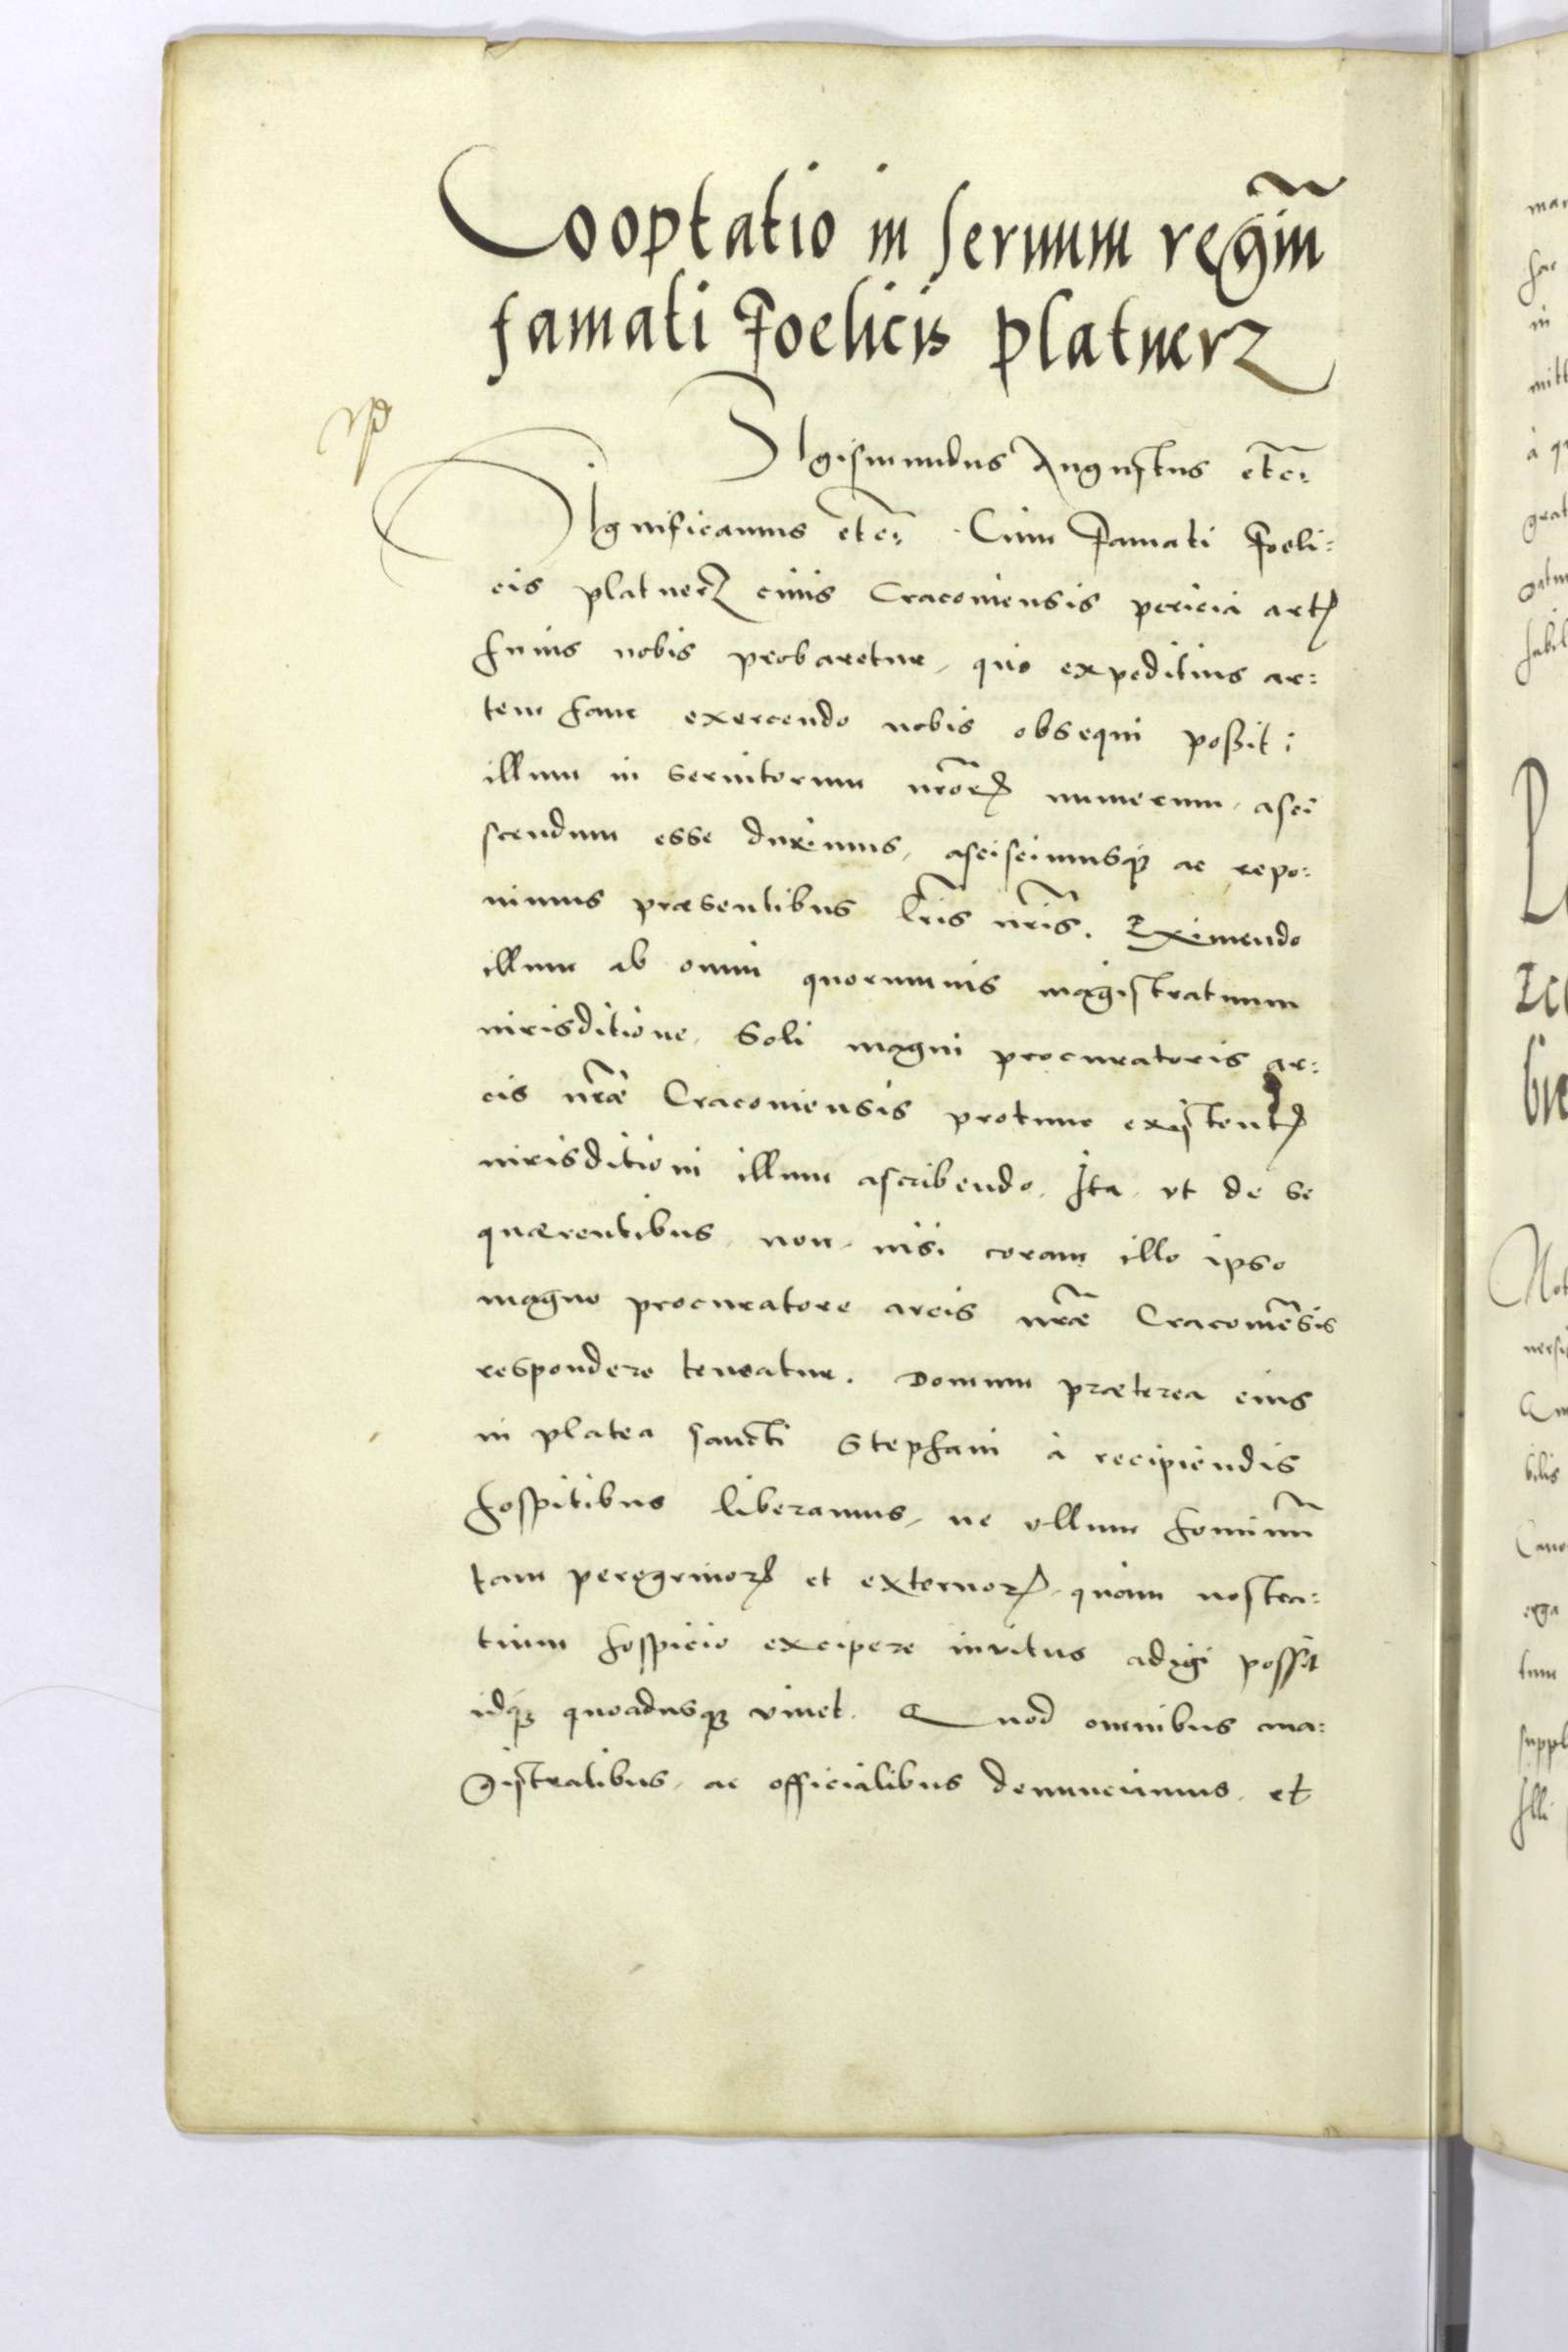 Cooptatio in seruum regiũ
famati Foelicis Platnerz
Sigismundus Augustus etc̄.
Significamus etc̄. Cum Famati Foeli:
cis platnerz ciuis Cracouiensis pericia artꝭ
huius nobis probaretur, quo expeditius ar:
tem hanc exercendo nobis obsequi poßit:
illum in seruitorum nr̄orꝝ numerum, asci
scendum esse duximus, asciscimusqꝫ ac repo:
nimus præsentibus lr̄is nr̄is. Eximendo
illum ab omni quorumuis magistratuum
iurisditione, Soli magni procuratoris ar:
cis nr̄æ Cracouiensis protunc existentꝭ
iurisditioni illum ascribendo. Ita, vt de se
quærentibus, non, nisi coram illo ipso
magno procuratore arcis nr̄æ Cracouiēsis
respondere teneatur. Domum præterea eius
in platea sancti Stephani à recipiendis
hospitibus liberamus, ne vllum hominũ
tam peregrinorꝝ et externorꝝ, quàm nostra:
tium hospicio excipere inuitus adigi possit
idqꝫ quoadusqꝫ viuet. Quod omnibus ma:
gistratibus, ac officialibus denunciamus, et